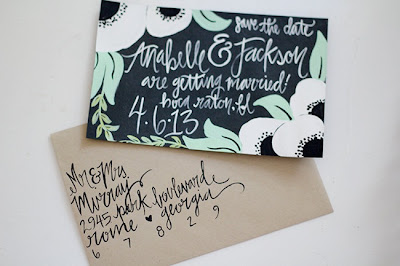 save the date
Anabelle & Jackson
are getting married!
boca raton, fl
4.6.13
Mr & Mrs.
Murray
2945 park boulevard
rome georgia
6 7 8 2 9